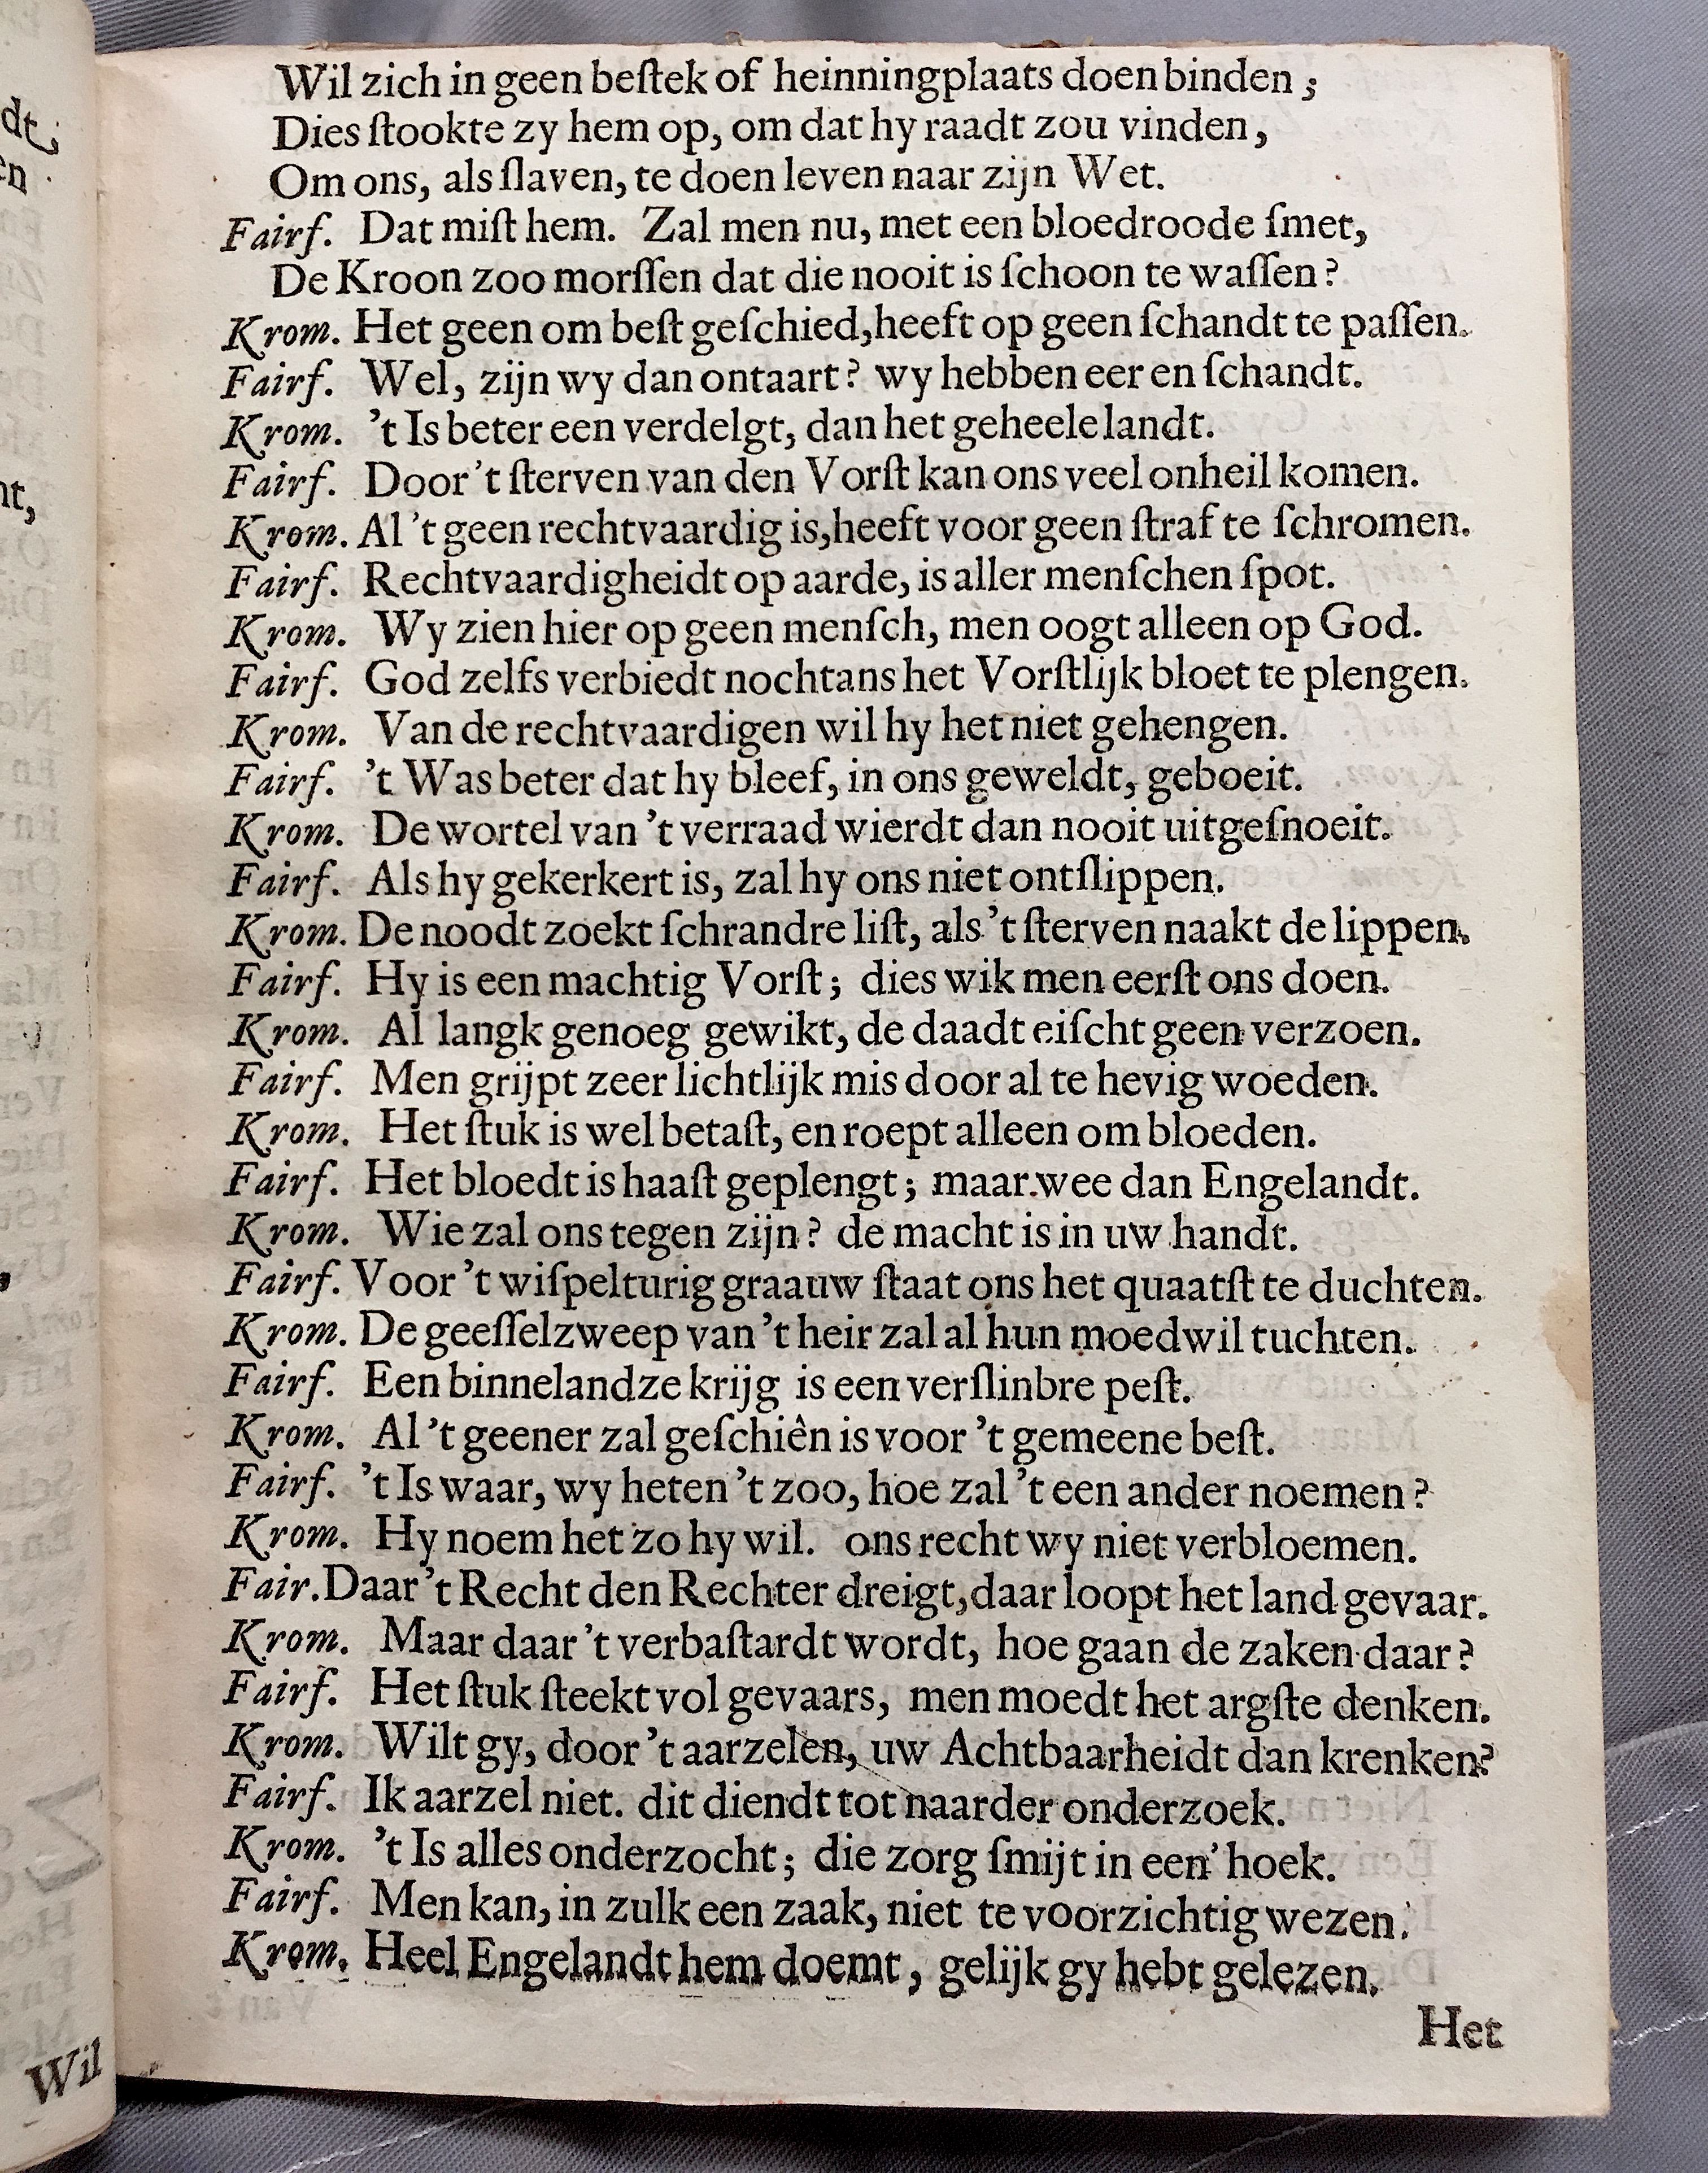 Wil zich in geen beſtek of heinningplaats doen binden;
Dies ſtookte zy hem op, om dat hy raadt zou vinden,
Om ons, als ſlaven, te doen leven naar zijn Wet.
Fairf. Dat miſt hem. Zal men nu, met een bloedroode ſmet,
De Kroon zoo morſſen dat die nooit is ſchoon te waſſen?
Krom. Het geen om beſt geſchied, heeft op geen ſchandt te paſſen.
Fairf. Wel, zijn wy dan ontaart? wy hebben eer en ſchandt.
Krom. 't Is beter een verdelgt, dan het geheele landt.
Fairf. Door 't ſterven van den Vorſt kan ons veel onheil komen.
Krom. Al 't geen rechtvaardig is, heeft voor geen ſtraf te ſchromen.
Fairf. Rechtvaardigheidt op aarde, is aller menſchen ſpot.
Krom. Wy zien hier op geen menſch, men oogt alleen op God.
Fairf. God zelfs verbiedt nochtans het Vorſtlijk bloet te plengen.
Krom. Van de rechtvaardigen wil hy het niet gehengen.
Fairf. 't Was beter dat hy bleef, in ons geweldt, geboeit.
Krom. De wortel van 't verraad wierdt dan nooit uitgeſnoeit.
Fairf. Als hy gekerkert is, zal hy ons niet ontſlippen.
Krom. De noodt zoekt ſchrandre liſt, als 't ſterven naakt de lippen.
Fairf. Hy is een machtig Vorſt; dies wik men eerſt ons doen.
Krom. Al langk genoeg gewikt, de daadt eiſcht geen verzoen.
Fairf. Men grijpt zeer lichtlijk mis door al te hevig woeden.
Krom. Het ſtuk is wel betaſt, en roept alleen om bloeden.
Fairf. Het bloedt is haaſt geplengt; maar wee dan Engelandt.
Krom. Wie zal ons tegen zijn? de macht is in uw handt.
Fairf. Voor 't wiſpelturig graauw ſtaat ons het quaatſt te duchten.
Krom. De geeſſelzweep van 't heir zal al hun moedwil tuchten.
Fairf. Een binnelandze krijg is een verſlinbre peſt.
Krom. Al 't geener zal geſchiên is voor 't gemeene beſt.
Fairf. 't Is waar, wy heten 't zoo, hoe zal 't een ander noemen?
Krom. Hy noem het zo hy wil. ons recht wy niet verbloemen.
Fair. Daar 't Recht den Rechter dreigt, daar loopt het land gevaar.
Krom. Maar daar 't verbaſtardt wordt, hoe gaan de zaken daar?
Fairf. Het ſtuk ſteekt vol gevaars, men moedt het argſte denken.
Krom. Wilt gy, door 't aarzelen, uw Achtbaarheidt dan krenken?
Fairf. Ik aarzel niet. dit diendt tot naarder onderzoek.
Krom. 't Is alles onderzocht; die zorg ſmijt in een' hoek.
Fairf. Men kan, in zulk een zaak, niet te voorzichtig wezen.
Krom. Heel Engelandt hem doemt, gelijk gy hebt gelezen.
Het
Wil